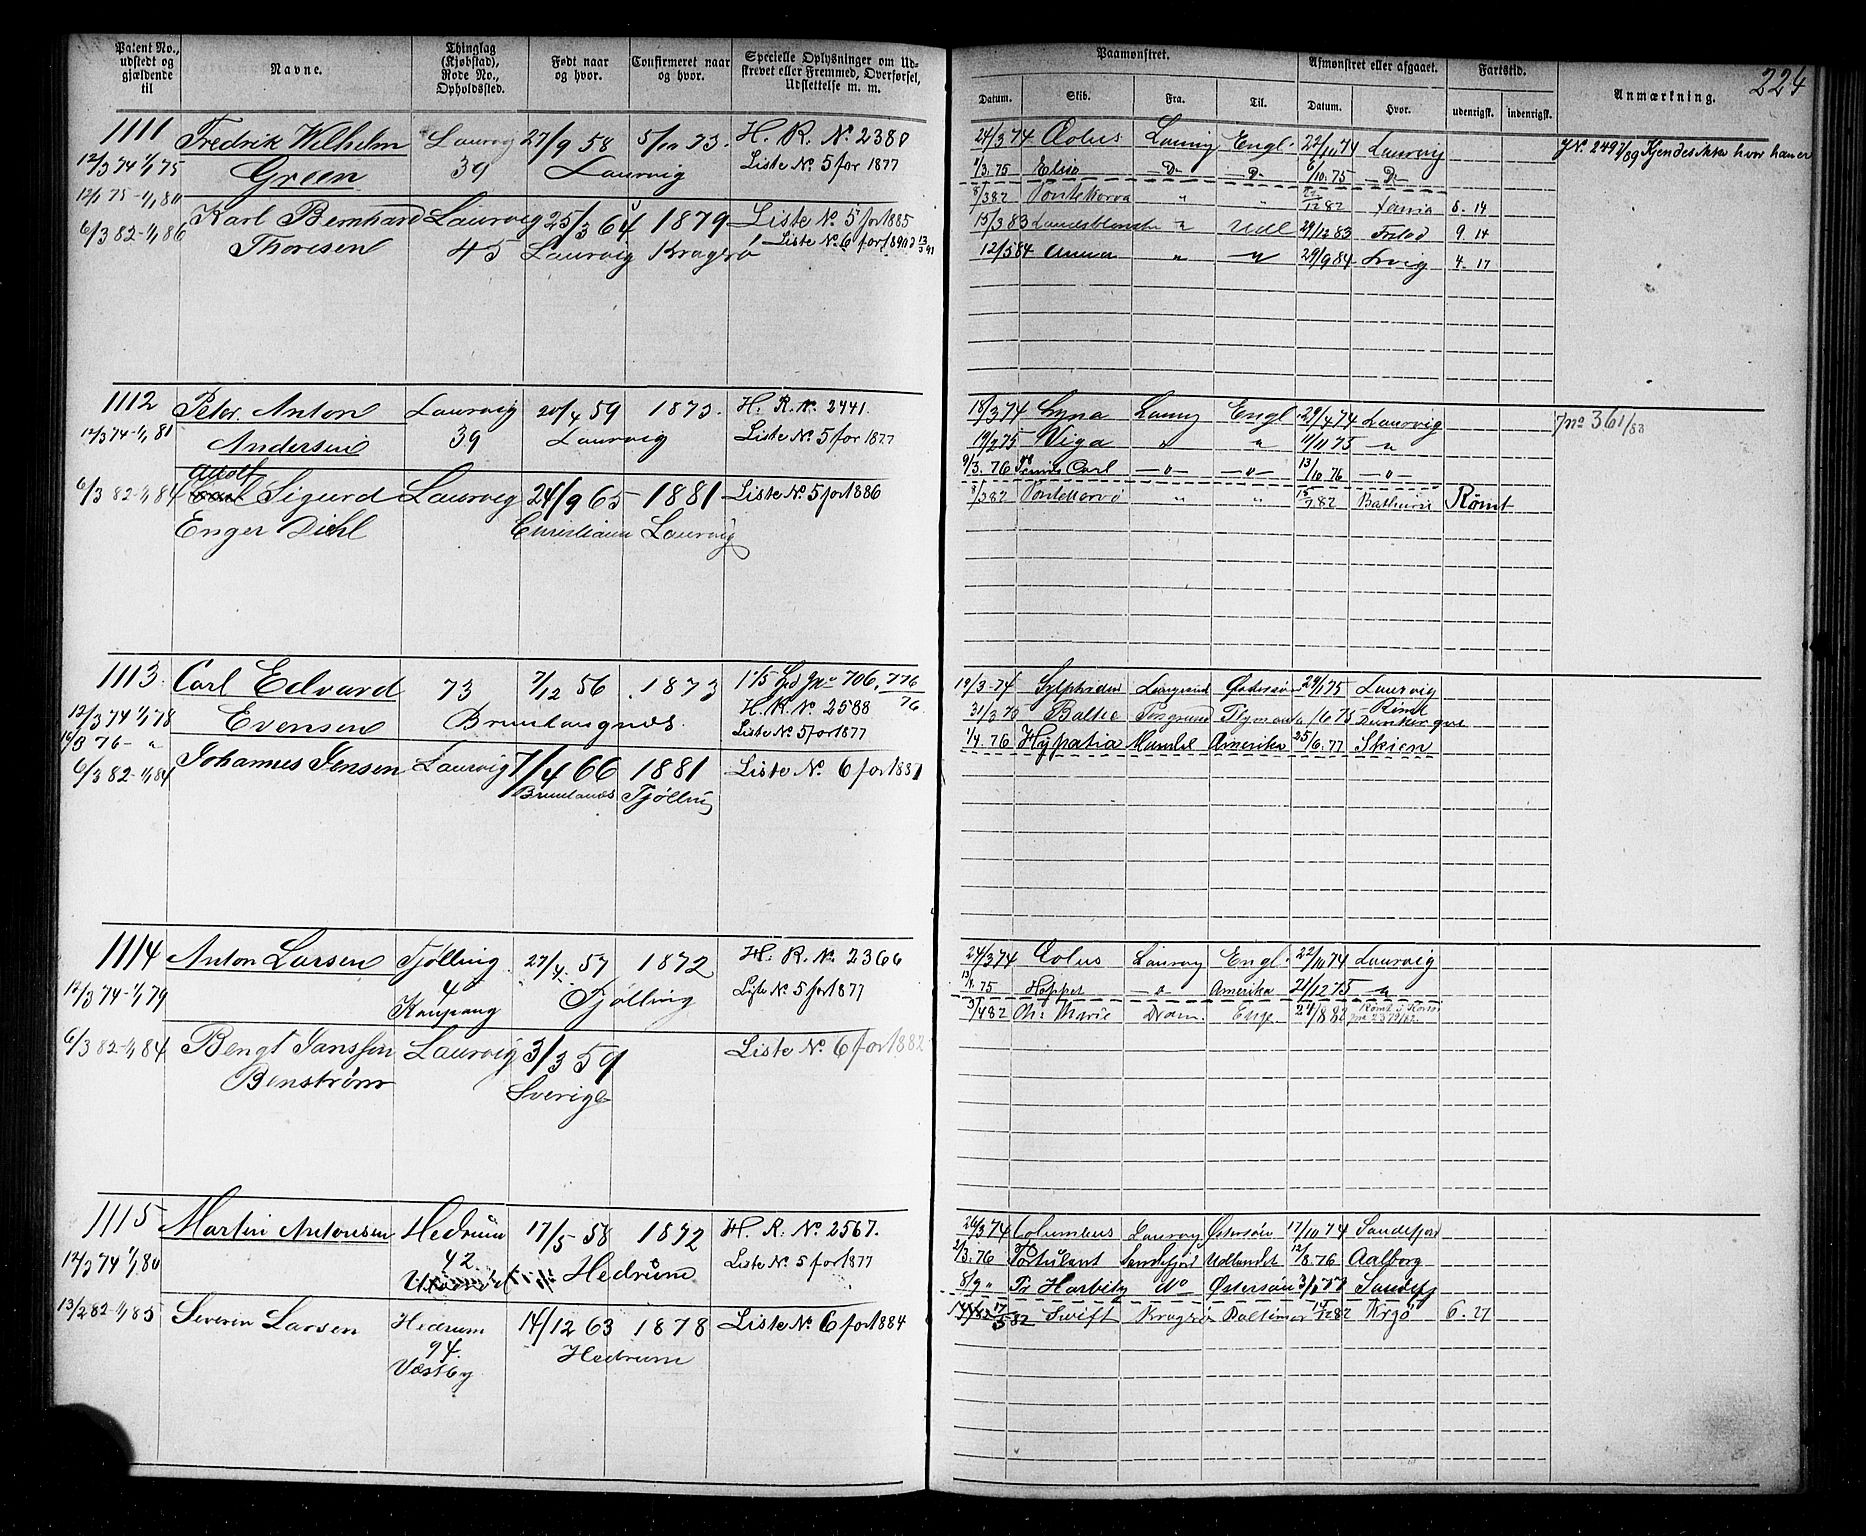 Patent No., udstedt og gjældende til | Navne. | Thinglag (Kjøbstad), Rode No., Opholdssted. | Født naar og hvor. | Confirmeret naar og hvor. | Specielle Oplysninger om Udskrevet eller Fremmed, Overførsel, Udslettelse m. m.
Paamønstret. | Afmønstret eller afgaaet. | Fartstid. | Anmærkning. | 224
Datum. | Skib. | Fra. | Til. | Datum. | Hvor. | udenrigsk. | indenrigsk.
1111 Fredrik Wilhelm Laurvig 27/9 58 5/10 73. H. R. No 2380
12/3 74 1/1 75 Green 39 Laurvig Liste No 5 for 1877
12/1 75-1/1 80
6/3 82-1/1 86 Karl Bernhard Laurvig 25/3 64 1879 Liste No 5 for 1885
Thoresen 45 Laurvig Kragrø Liste No 6 for 1890
24/3 74 Æolus Laurvig Engl. 22/10 74 Laurvig
1/3. 75 Elise D- D- 6/10. 75 D-
8/3 82 82 6. 14
15/3 83 Udl 29/12 83 9. 14
12/5 84 Anna 29/9 84 Lrvig 4. 17
J No. 249 1/89 Kjendes ikke hvor han er
1112 Peter Anton Laurvig 20/4 59 1873. H. R. No. 2441.
12/3 74-1/1 81 Andersen 39 Laurvig Liste No 5 for 1877
Adolf
6/3 82-1/1 84 Sigurd Laurvig 24/9 65 1881 Liste No 5 for 1886
Enger Diehl Christiania Laurvig
18/3 74 Laurvig Engl. 29/4 74 Laurvig
19/2 75 Viga 11/11 75
9/3. 76 Carl 13/10 76
8/3 82 82 Rømt
Jno 361/83
1113. Carl Edvard 73 7/12 56 1873 17/5 Jno 706, 776/76
12/3 74 1/1 78 Evensen Brunlangnæs. H. R. No 2588
Liste No 5 for 1877
6/3 82-1/1 84 Johannes Jensen Laurvig 7/4 66 1881 Liste No. 6 for 1887
Brunlanæs Tjølling
19/3-74 Sylphiden Østersø 29/1 75 Laurvig
31/3 75 Baltic Dunkerque
1/4. 76 Hypatia Mandal Amerika 25/6. 77 Skien
1114 Anton Larsen Tjølling 27/4. 57 1872 H. R. No. 2366
12/3 74-1/1 79 4 Kaupang Tjølling Liste No 5 for 1877
6/3 82-1/1 84 Bengt Jansson Laurvig 3/3 59 Liste No. 6 for 1882
Benstrøm Sverige
24/3 74 Æolus Laurvig Engl. 22/10 74 Laurvig
75 Hoppet Amerika 21/12 75
3/4 82 Marie Dram. Eng. 24/8 82
1115 Martin Antonsen Hedrum 17/5 58 1872 H. R. No. 2567.
12/3 74 1/1 80 42. Hedrum Liste No. 5 for 1877
13/2 82-1/1 85 Severin Larsen Hedrum 14/12 63 1878 Liste No 6 for 1884
94. Hedrum
Vestby
26/3 74 Columbus Laurvig Østersøen 17/10 74 Sandefjord
2/3. 76 Sandefjord Udlandet 12/8. 76 Aalborg
8/9 " Pr Harbitz Do Østersøen Sandefj
17/5 82 Swift Kragrø 82 Krgø 6. 27